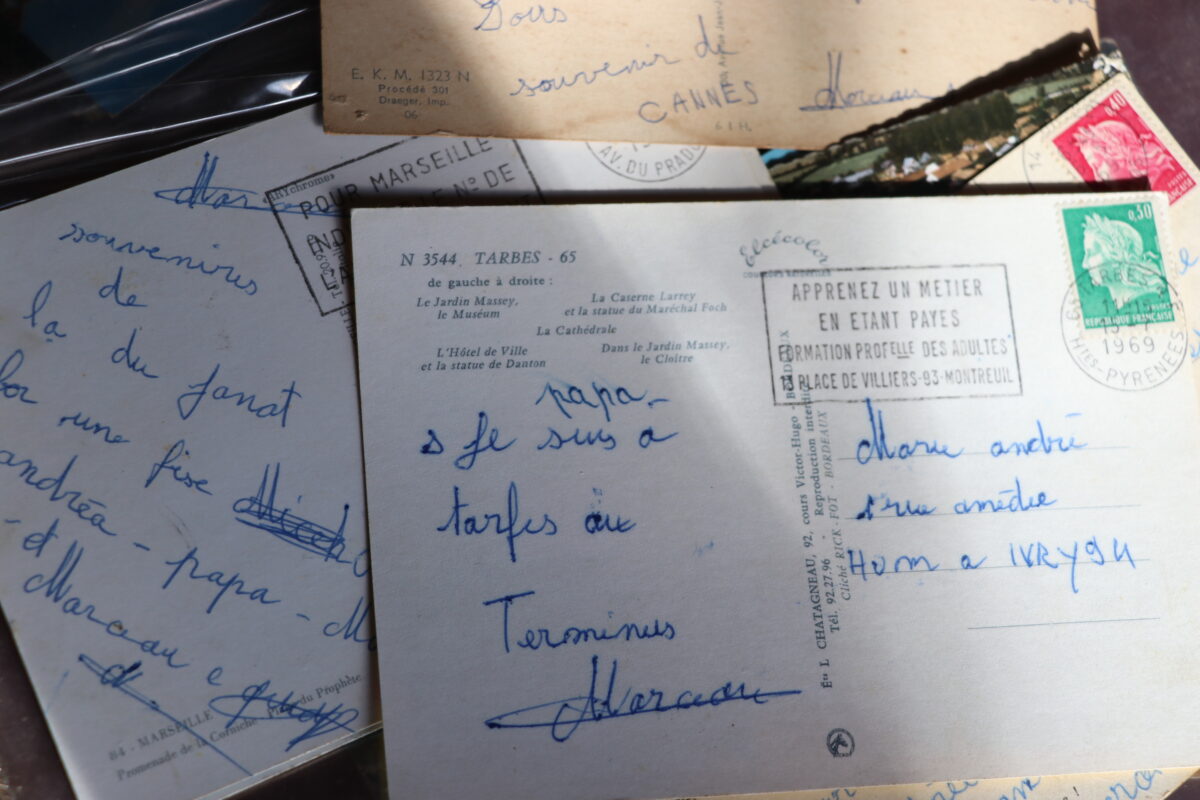 Dours
souvenir de
CANNES Marceau
E. K. M. 1323 N
Procédé 301
Draeger, Imp.
06
AV. DU PRADO
POUR MARSEILLE
N° DE
souvenires
de
la du Janat
une fise
andréa - papa -
et
Marceau e
84 - MARSEILLE
Promenade de la Corniche du Prophète
N 3544 TARBES - 65
de gauche à droite :
Le Jardin Massey,
le Muséum
La Caserne Larrey
et la statue du Maréchal Foch
La Cathédrale
L'Hôtel de Ville
et la statue de Danton
Dans le Jardin Massey,
le Cloître
Elcécolor
papa
s Je suis a
tarfes au
Terminus
Marceau
Éts L CHATAGNEAU, 92, cours Victor-Hugo - BORDEAUX
Tél. 92.27.96 - Reproduction interdite
Cliché RICK-FOT - BORDEAUX
APPRENEZ UN METIER
EN ETANT PAYES
FORMATION PROFELLE DES ADULTES
PLACE DE VILLIERS-93-MONTREUIL
0,30
REPUBLIQUE FRANÇAISE
1969
HTES-PYRENEES
0,40
Marie andré
1 rue amédée
Hum a IVRY 94